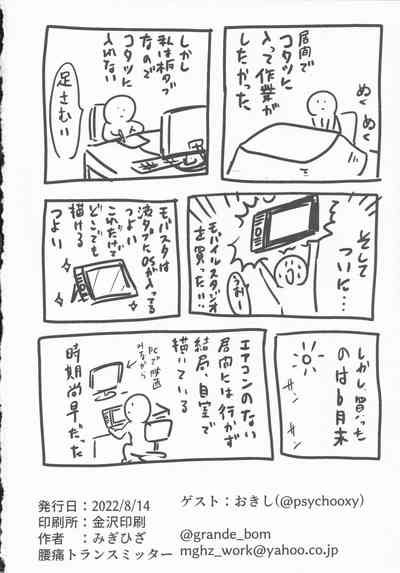 居間で
コタツに
入って作業が
したかった
ぬく
ぬく
しかし
私は板タブ
なので
コタツに
入れない
足さむい
そして
ついに…
モバイルスタジオ
を買った!!
うおー
モバスタは
液タブにOSが入ってる
つよい
これだけで
どこでも
描ける
つよい
しかし買った
のは6月末
サン
サン
エアコンのない
居間には行かず
結局、自室で
描いている
PCで映画
みながら
時期尚早だった
発行日:2022/8/14
印刷所:金沢印刷
作者 :みぎひざ
腰痛トランスミッター
ゲスト:おきし(@psychooxy)
@grande_bom
mghz_work@yahoo.co.jp